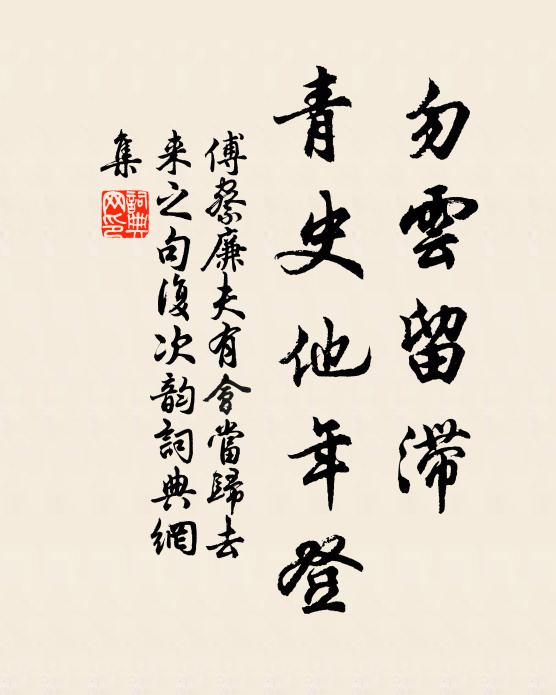 勿雲留滯
青史他年登
傅察廉夫有會當歸去
来之句復次韵詞典網
集
詞典網印